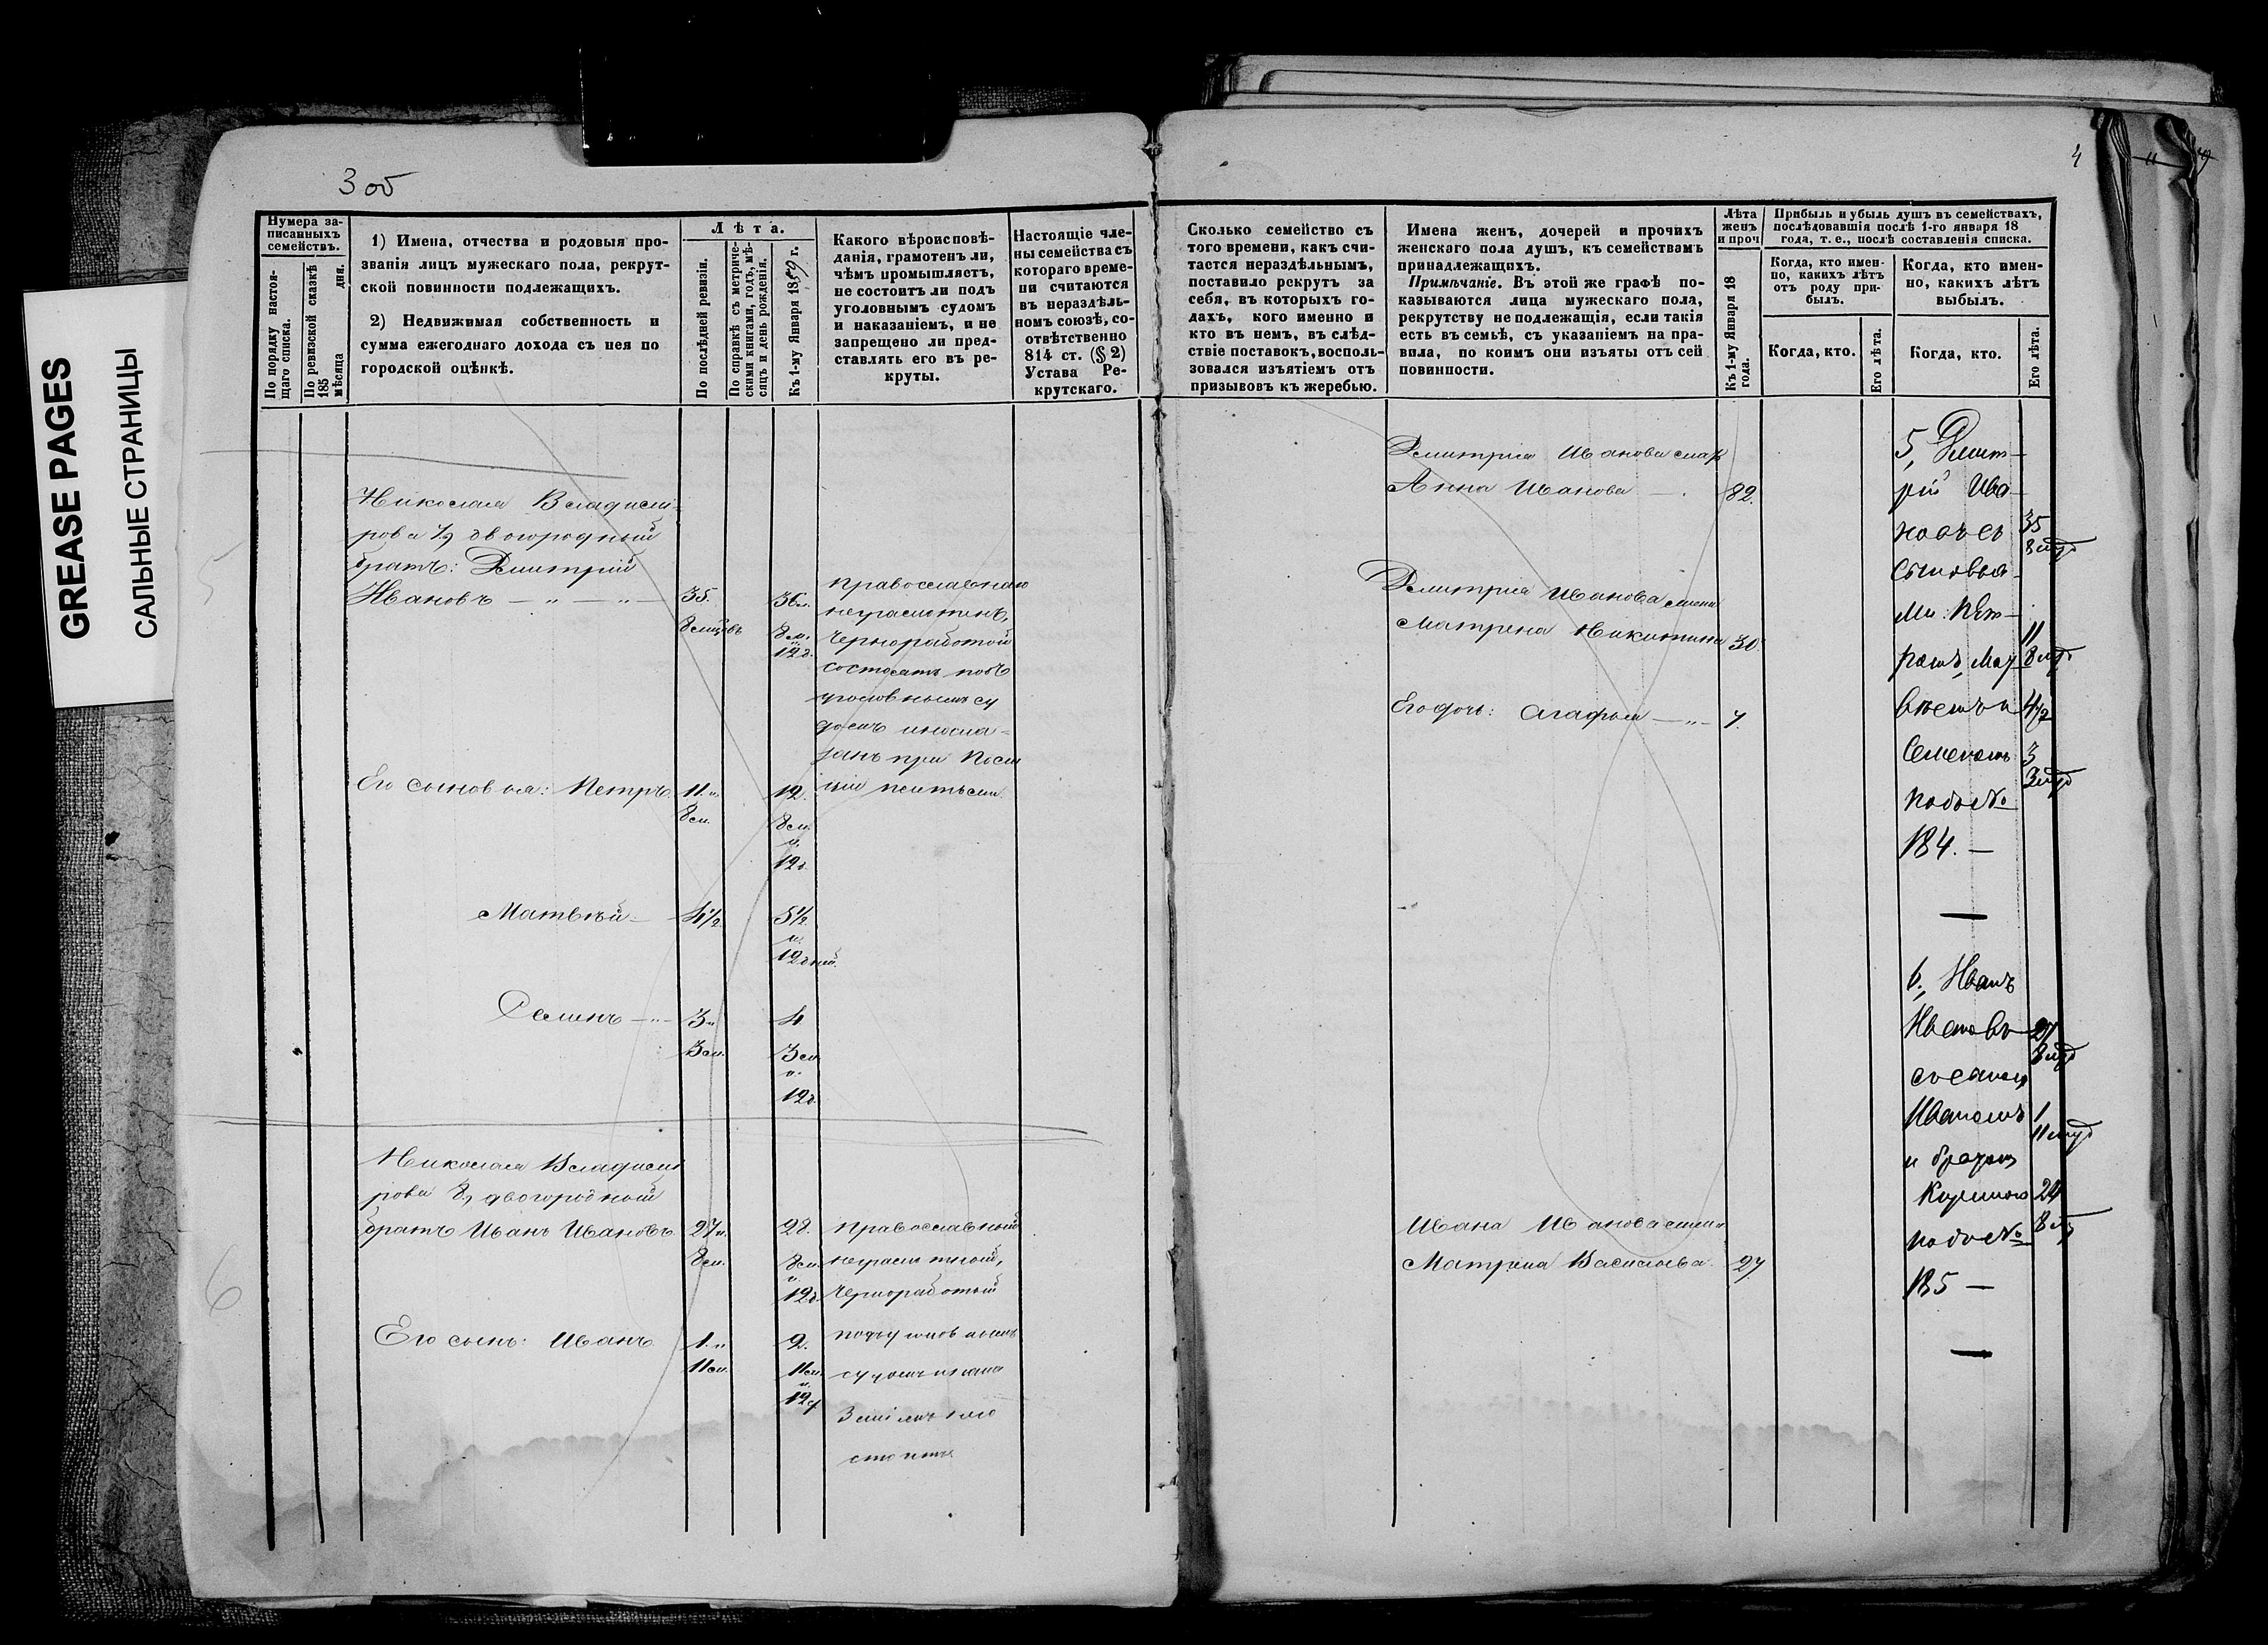 GREASE PAGES
САЛЬНЫЕ СТРАНИЦЫ
3 об
Нумера за-
писанныхъ
семействъ.
По порядку настоя-
щаго списка.
По ревизской сказкѣ
185 мѣсяца дня.
1) Имена, отчества и родовыя про-
званія лицъ мужескаго пола, рекрут-
ской повинности подлежащихъ.
2) Недвижимая собственность и
сумма ежегоднаго дохода съ нея по
городской оцѣнкѣ.
Лѣта.
По послѣдней ревизіи.
По справкѣ съ метриче-
скими книгами, годъ, мѣ-
сяцъ и день рожденія.
Къ 1-му Января 1859 г.
Какого вѣроисповѣ-
данія, грамотенъ ли,
чѣмъ промышляетъ,
не состоитъ ли подъ
уголовнымъ судомъ
и наказаніемъ, и не
запрещено ли пред-
ставлять его въ ре-
круты.
Настоящіе чле-
ны семейства съ
котораго време-
ни считаются
въ нераздѣль-
номъ союзѣ, со-
отвѣтственно
814 ст. (§ 2)
Устава Ре-
крутскаго.
Николая Владими-
рова 7, двоюродный
братъ: Дмитрій
Ивановъ — " — " —
35.
8 мцовъ
36 л.
8 м.
и
12 д.
православнаго
неграмотенъ,
чернорабочій
состоитъ подъ
уголовнымъ су
домъ
при
Его сыновья: Петръ.
11. и
8 м.
12.
8 м.
и
12 д.
Матвѣй —
4 1/2
5 1/2
и
12 дней.
Семенъ — " —
3 и
3 м.
4
3 м.
и
12 д.
Николая Владими
рова 8, двоюродный
братъ Иванъ Ивановъ.
27 и
8 м.
28.
8 м.
и
12 д.
православный
неграмотный,
чернорабочій
Его сынъ: Иванъ
1. и
11 м.
2.
11 м.
и
12 д
подъ уголовнымъ
судомъ
5
6
4
Сколько семейство съ
того времени, какъ счи-
тается нераздѣльнымъ,
поставило рекрутъ за
себя, въ которыхъ го-
дахъ, кого именно и
кто въ немъ, въ слѣд-
ствіе поставокъ, восполь-
зовался изъятіемъ отъ
призывовъ къ жеребью.
Имена женъ, дочерей и прочихъ
женскаго пола душъ, къ семействамъ
принадлежащихъ.
Примѣчаніе. Въ этой же графѣ по-
казываются лица мужескаго пола,
рекрутству не подлежащія, если такія
есть въ семьѣ, съ указаніемъ на пра-
вила, по коимъ они изъяты отъ сей
повинности.
Лѣта
женъ
и проч
Къ 1-му Января 18
года.
Прибыль и убыль душъ въ семействахъ,
послѣдовавшія послѣ 1-го января 18
года, т. е., послѣ составленія списка.
Когда, кто имен-
но, какихъ лѣтъ
отъ роду при-
былъ.
Когда, кто.
Его лѣта.
Когда, кто имен-
но, какихъ лѣтъ
выбылъ.
Когда, кто.
Его лѣта.
Дмитрія Иванова
Анна Иванова — .
82.
Дмитрія Иванова жена
Матрена Никитина
30
Его дочь: Агафья — " —
7.
Ивана Иванова жена
Матрена Васильева.
27
5, Дмит-
рій Ива-
новъ съ
сыновья-
ми: Пет-
ромъ, Мат
вѣемъ и
Семеномъ
подъ №
184. —
35
8 мцд
11
8 мцд
4 1/2
3
3 мцд
6, Иванъ
Ивановъ
съ сыномъ
Иваномъ
и братомъ
подъ №
185 —
27
8 мцд
1
11 мцд
24